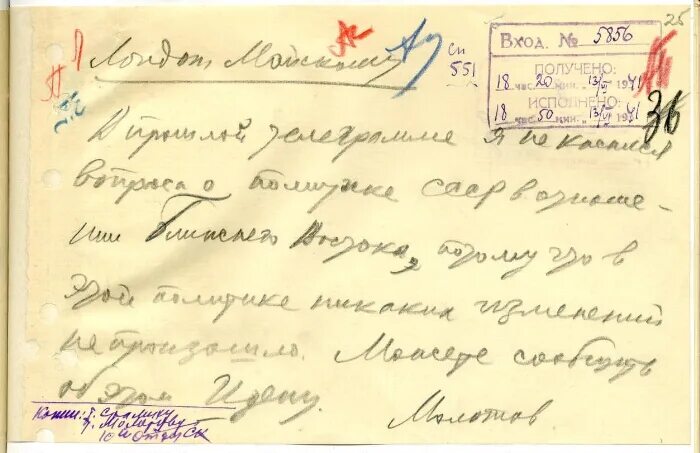 25
Лондон, Майскому
СП
551
Вход. № 5856
ПОЛУЧЕНО:
18 час. 20 мин. 13/VI 1941
ИСПОЛНЕНО:
18 час. 50 мин. 13/VI 1941
36
В прошлой телеграмме я не касался
вопроса о политике СССР в отноше-
нии Ближнего Востока, потому что в
этой политике никаких изменений
не произошло. Можете сообщить
об этом Идену.
Молотов
Копии: т. Сталину
т. Молотову
10й Отдел СК